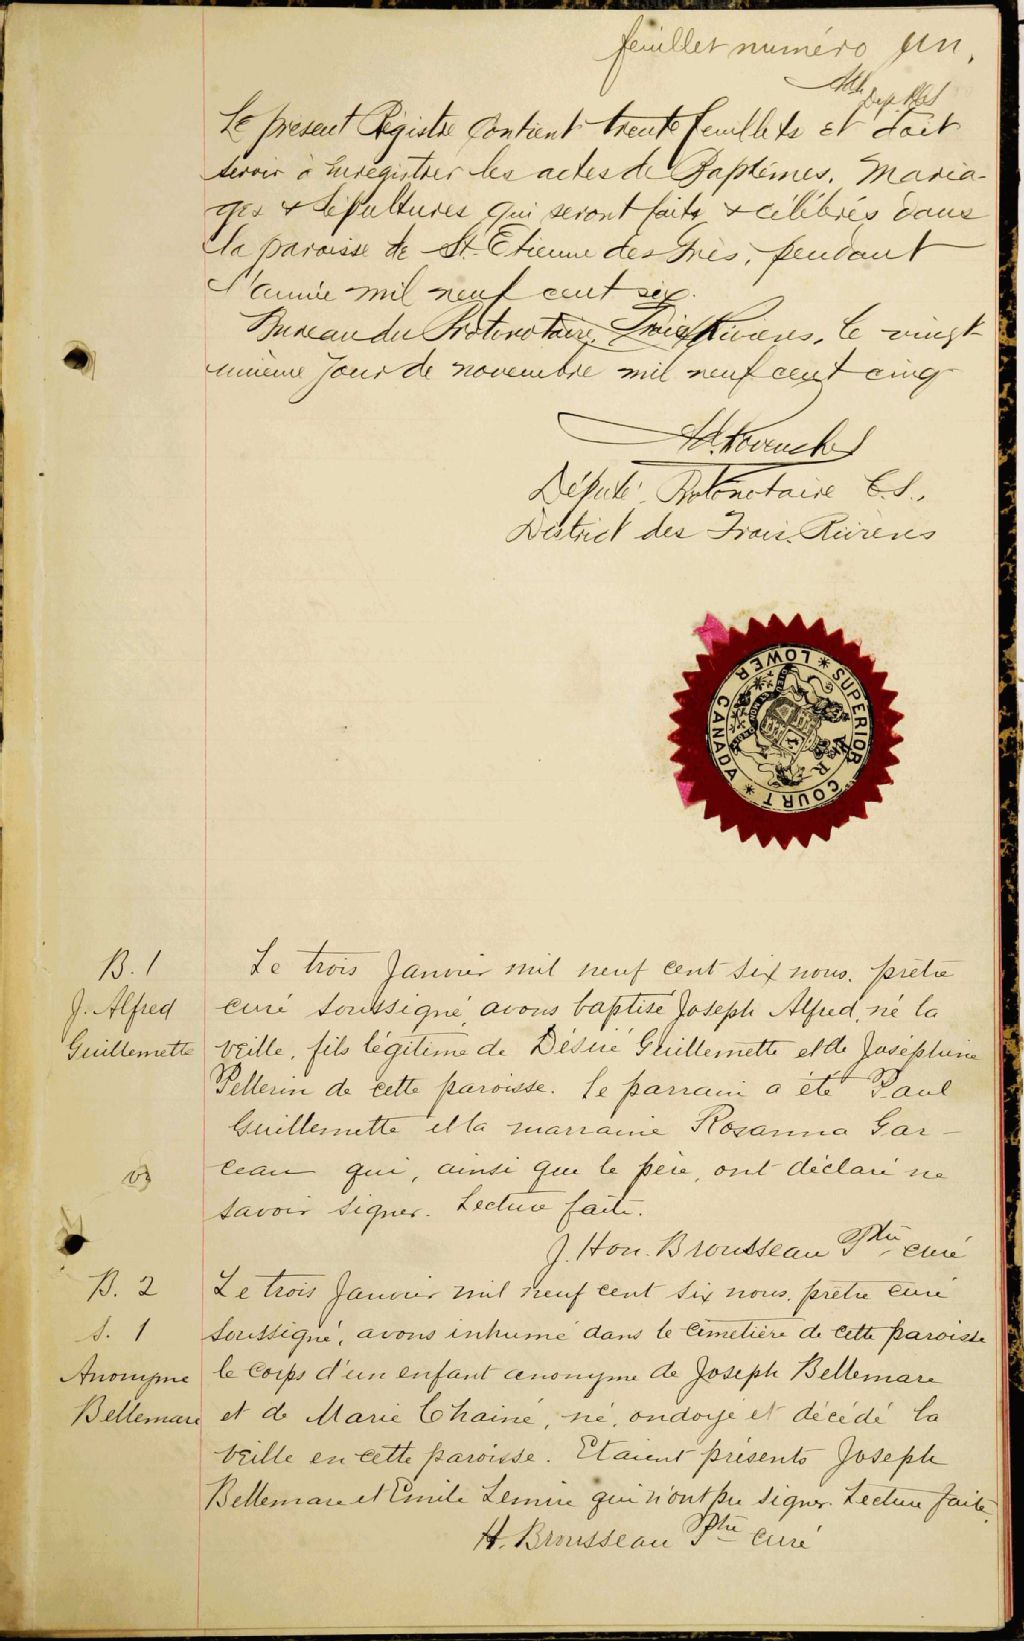 feuillet numéro un.
Dep. 
Le présent Régistre contient trente feuillets et doit
servir à enregistrer les actes de Baptêmes, Maria-
ges & Sépultures qui seront faits & célébrés dans
la paroisse de St. Etienne des Grès, pendant
l'année mil neuf cent six.
Bureau du Protonotaire, Trois Rivières, le vingt
unième jour de novembre mil neuf cent cinq
Député Protonotaire C.S.,
District des Trois-Rivières
SUPERIOR COURT * LOWER CANADA *
V R
B. 1
J. Alfred
Guillemette
Le trois Janvier mil neuf cent six nous, prêtre
curé soussigné, avons baptisé Joseph Alfred, né la
veille, fils légitime de Désiré Guillemette et de Joséphine
Pellerin de cette paroisse. Le parrain a été Paul
Guillemette et la marraine Rosanna Gar-
ceau qui, ainsi que le père, ont déclaré ne
savoir signer. Lecture faite.
J. Hon. Brousseau Ptre curé
B. 2
S. 1
Anonyme
Bellemare
Le trois Janvier mil neuf cent six nous, prêtre curé
soussigné, avons inhumé dans le cimetière de cette paroisse
le corps d'un enfant anonyme de Joseph Bellemare
et de Marie Chainé, né, ondoyé et décédé la
veille en cette paroisse. Etaient présents Joseph
Bellemare et Emile Lemire qui n'ont pu signer. Lecture faite.
H. Brousseau Ptre curé